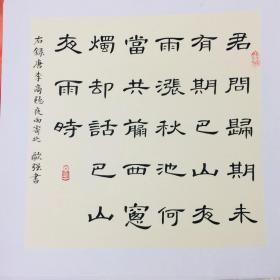 君問歸期未
有期巴山夜
雨漲秋池何
當共翦西窻
燭却話巴山
夜雨時
右錄唐李商隱夜雨寄北 歐強書